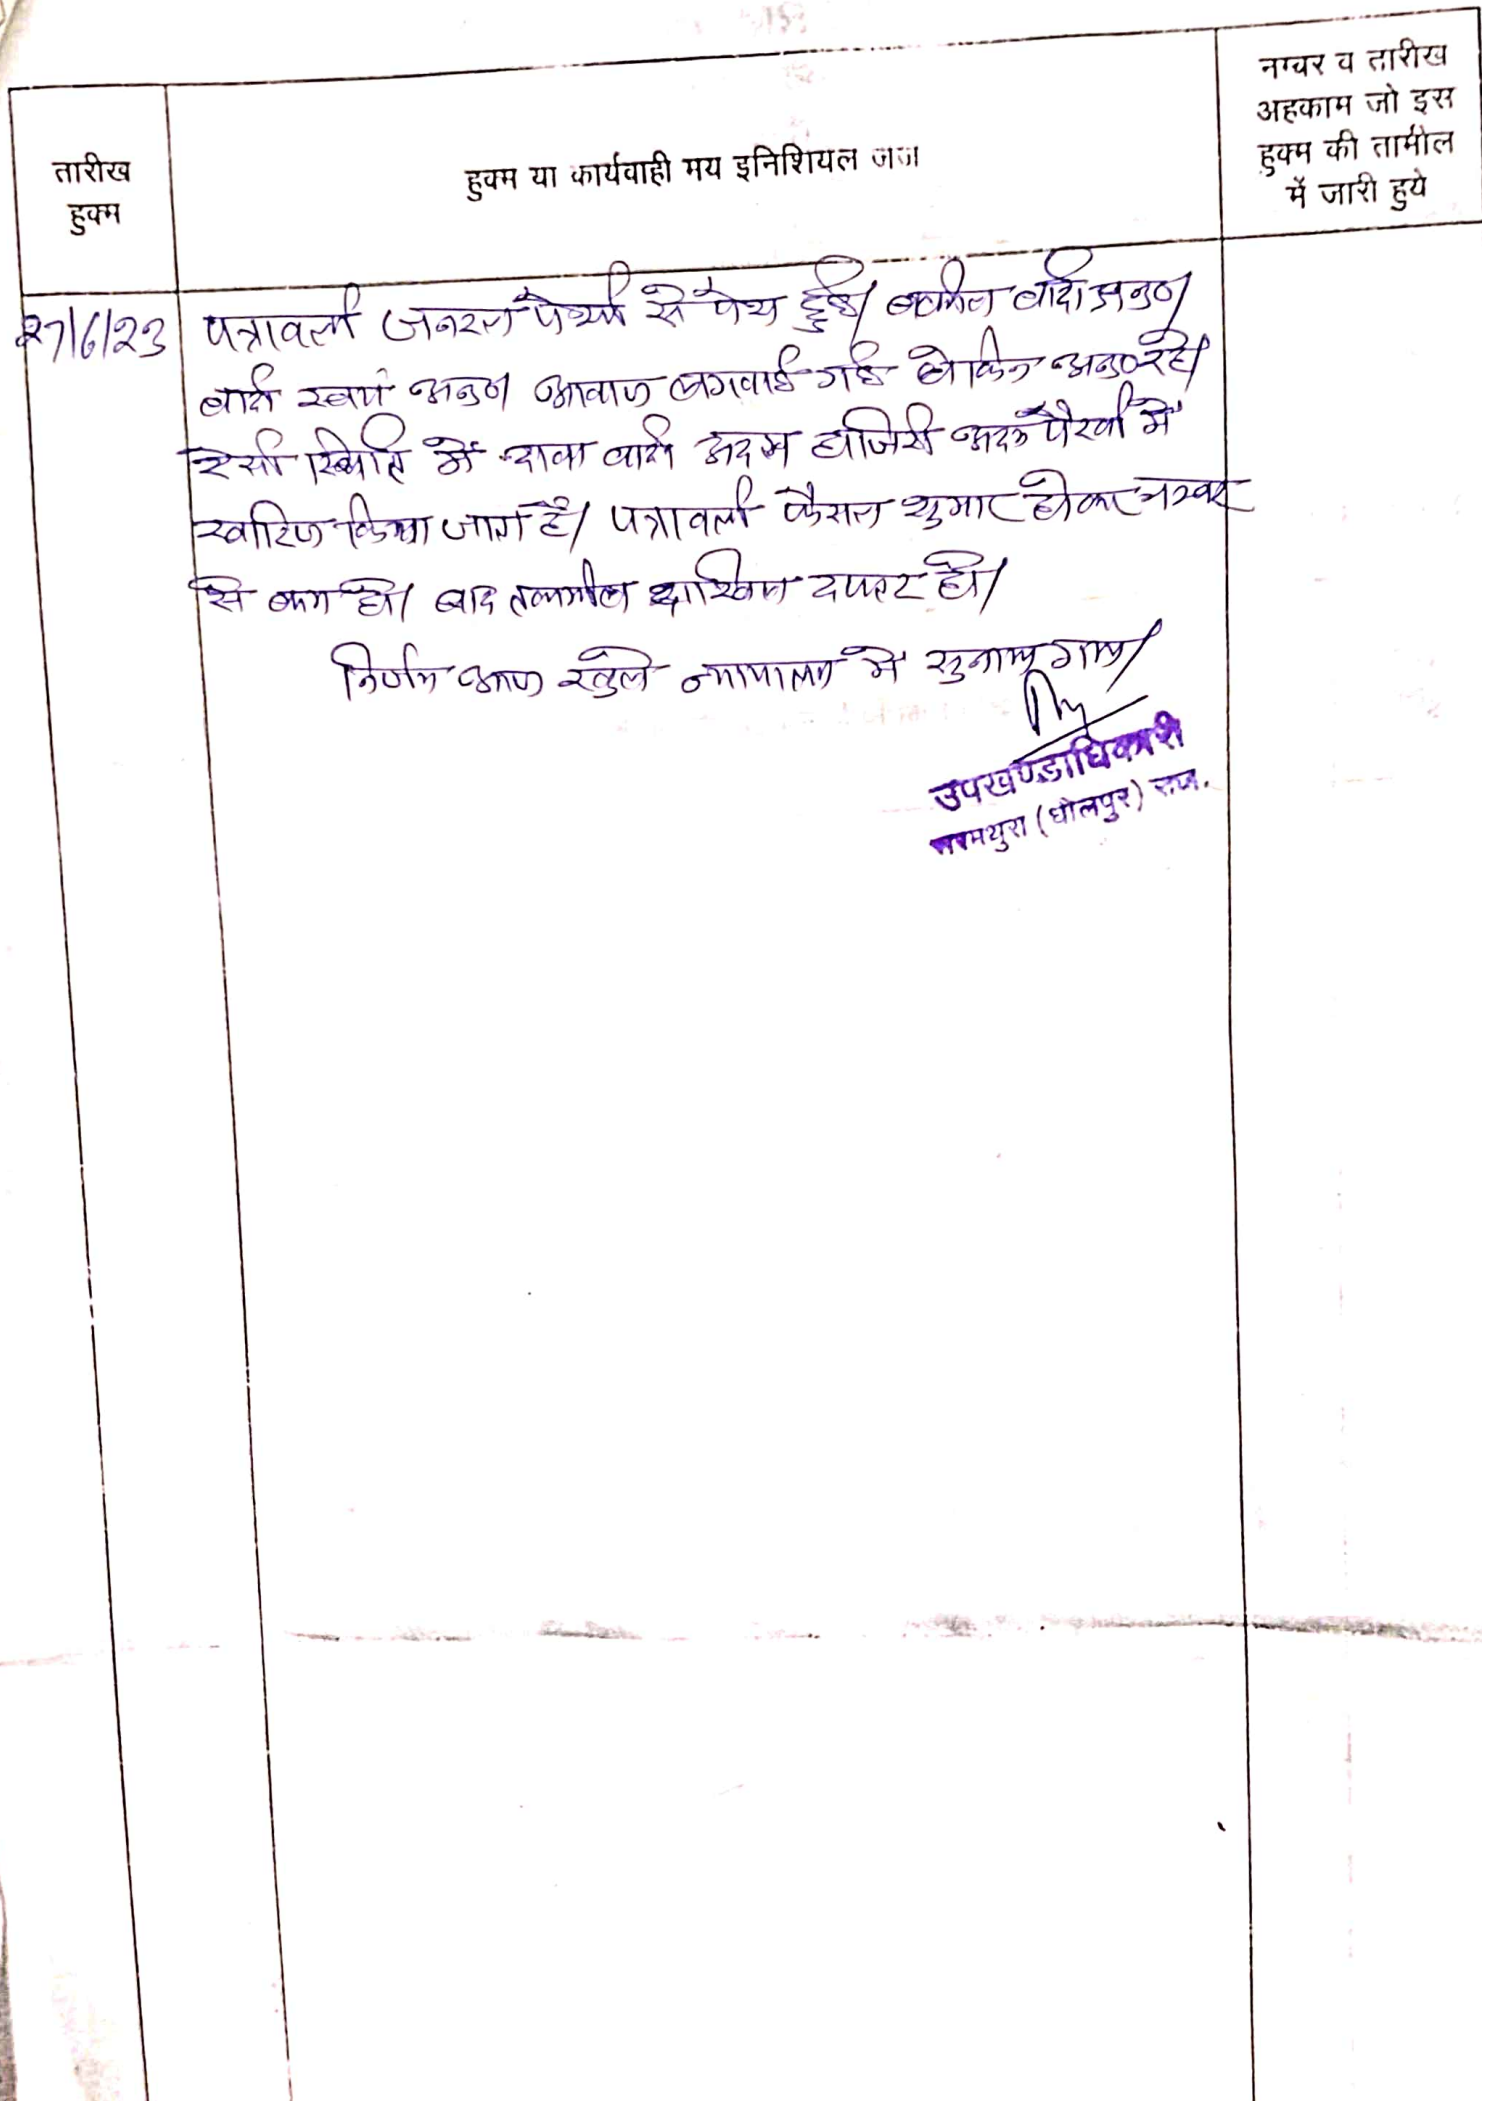 नम्बर व तारीख
अहकाम जो इस
हुक्म की तामील
में जारी हुये
तारीख
हुक्म
हुक्म या कार्यवाही मय इनिशियल जज
27/6/23
पत्रावली जनरल पेशी से पेश हुई। वकील वादी अनु०।
वादी स्वयं अनु०। आवाज लगवाई गई लेकिन अनु० रहे।
ऐसी स्थिति में दावा वादी अदम हाजिरी अदम पैरवी में
खारिज किया जाता है। पत्रावली फैसल शुमार होकर नम्बर
से कम हो। बाद तकमील दाखिल दफ्तर हो।
निर्णय आज खुले न्यायालय में सुनाया गया।
उपखण्डाधिकारी
सरमथुरा (धौलपुर) राज.